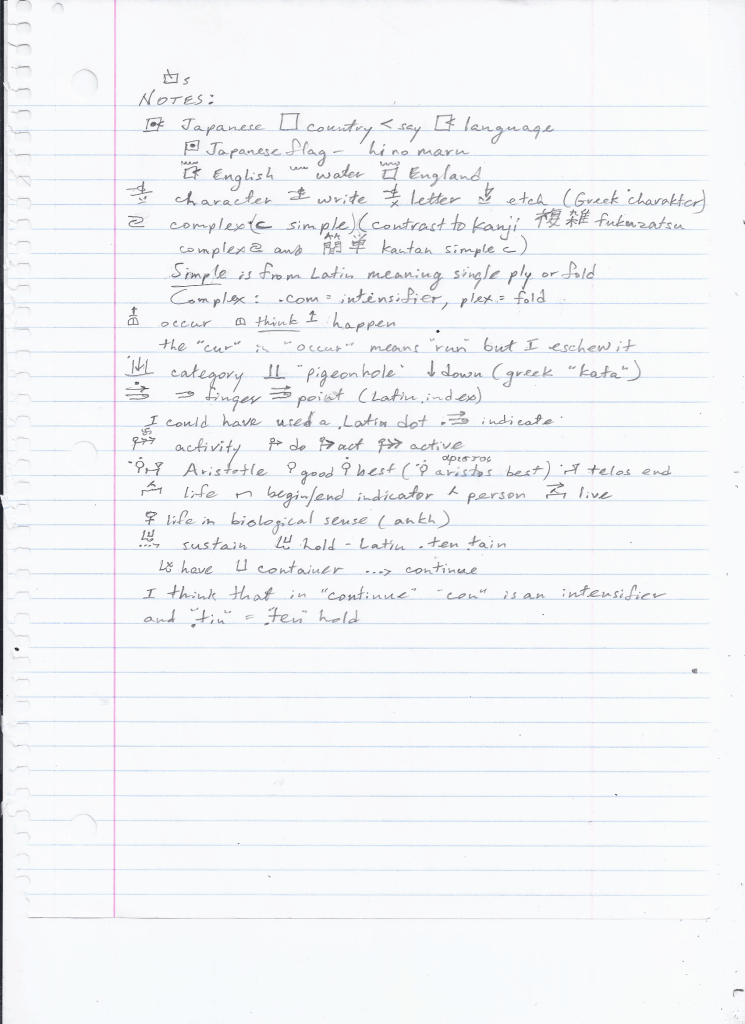 s
NOTES:
Japanese □ country < say language
Japanese flag - hi no maru
English water England
character write letter etch (Greek charakter)
complex (⊂ simple) (contrast to Kanji 複雑 fukuzatsu
complex and 簡単 kantan simple ⊂)
Simple is from Latin meaning single ply or fold
Complex: .com = intensifier, plex = fold
occur think happen
the "cur" in "occur" means "run" but I eschew it
category "pigeonhole" ↓ down (greek "kata")
finger point (Latin index)
I could have used a .Latin dot . indicate
activity do act active
αριστος
Aristotle good best ( aristos best) telos end
life begin/end indicator person live
life in biological sense (ankh)
sustain hold - Latin .ten .tain
have ⊔ container ...> continue
I think that in "continue" "con" is an intensifier
and ".tin" = ".ten" hold